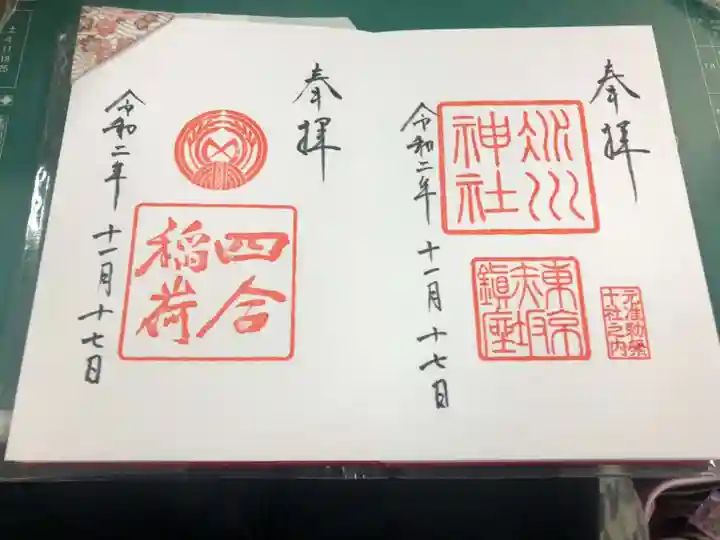 奉拝
氷川
神社
東京
赤坂
鎮座
元准勅祭
十社之内
令和二年 十一月 十七日
奉拝
四合
稲荷
令和二年 十一月 十七日